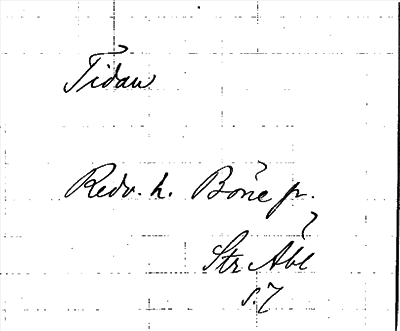 Tidan
Redv. h. Böne p.
Str. Åbl
s. 7